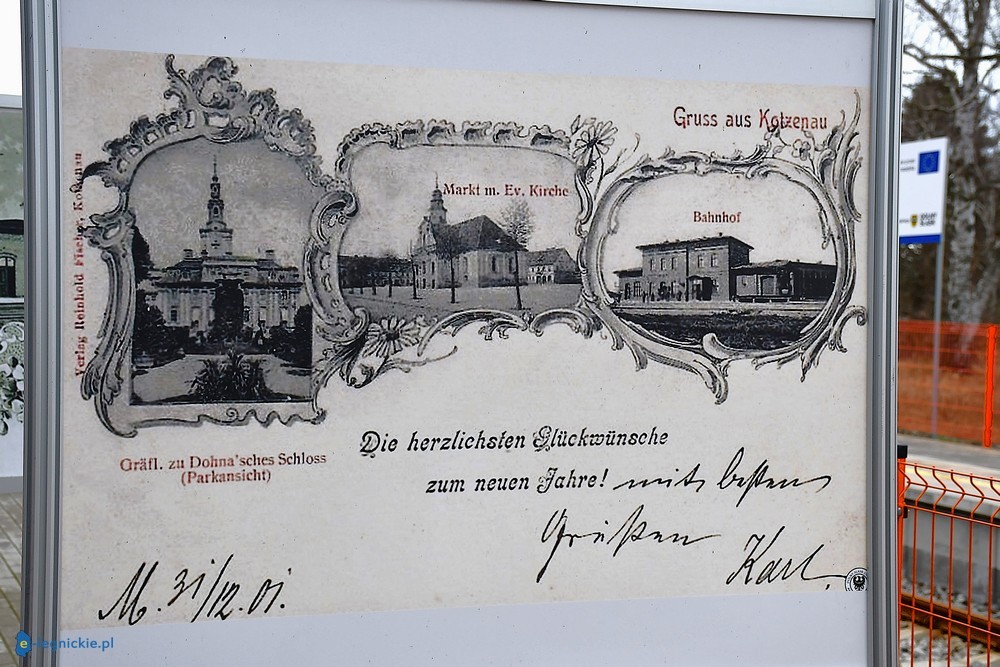 Gruss aus Kotzenau
Verlag Reinhold Fischer, Kotzenau
Markt m. Ev. Kirche
Bahnhof
Gräfl. zu Dohna'sches Schloss
(Parkansicht)
Die herzlichsten Glückwünsche
zum neuen Jahre! mit besten
Grüßen Karl.
M. 31/12.01.
e-legnickie.pl